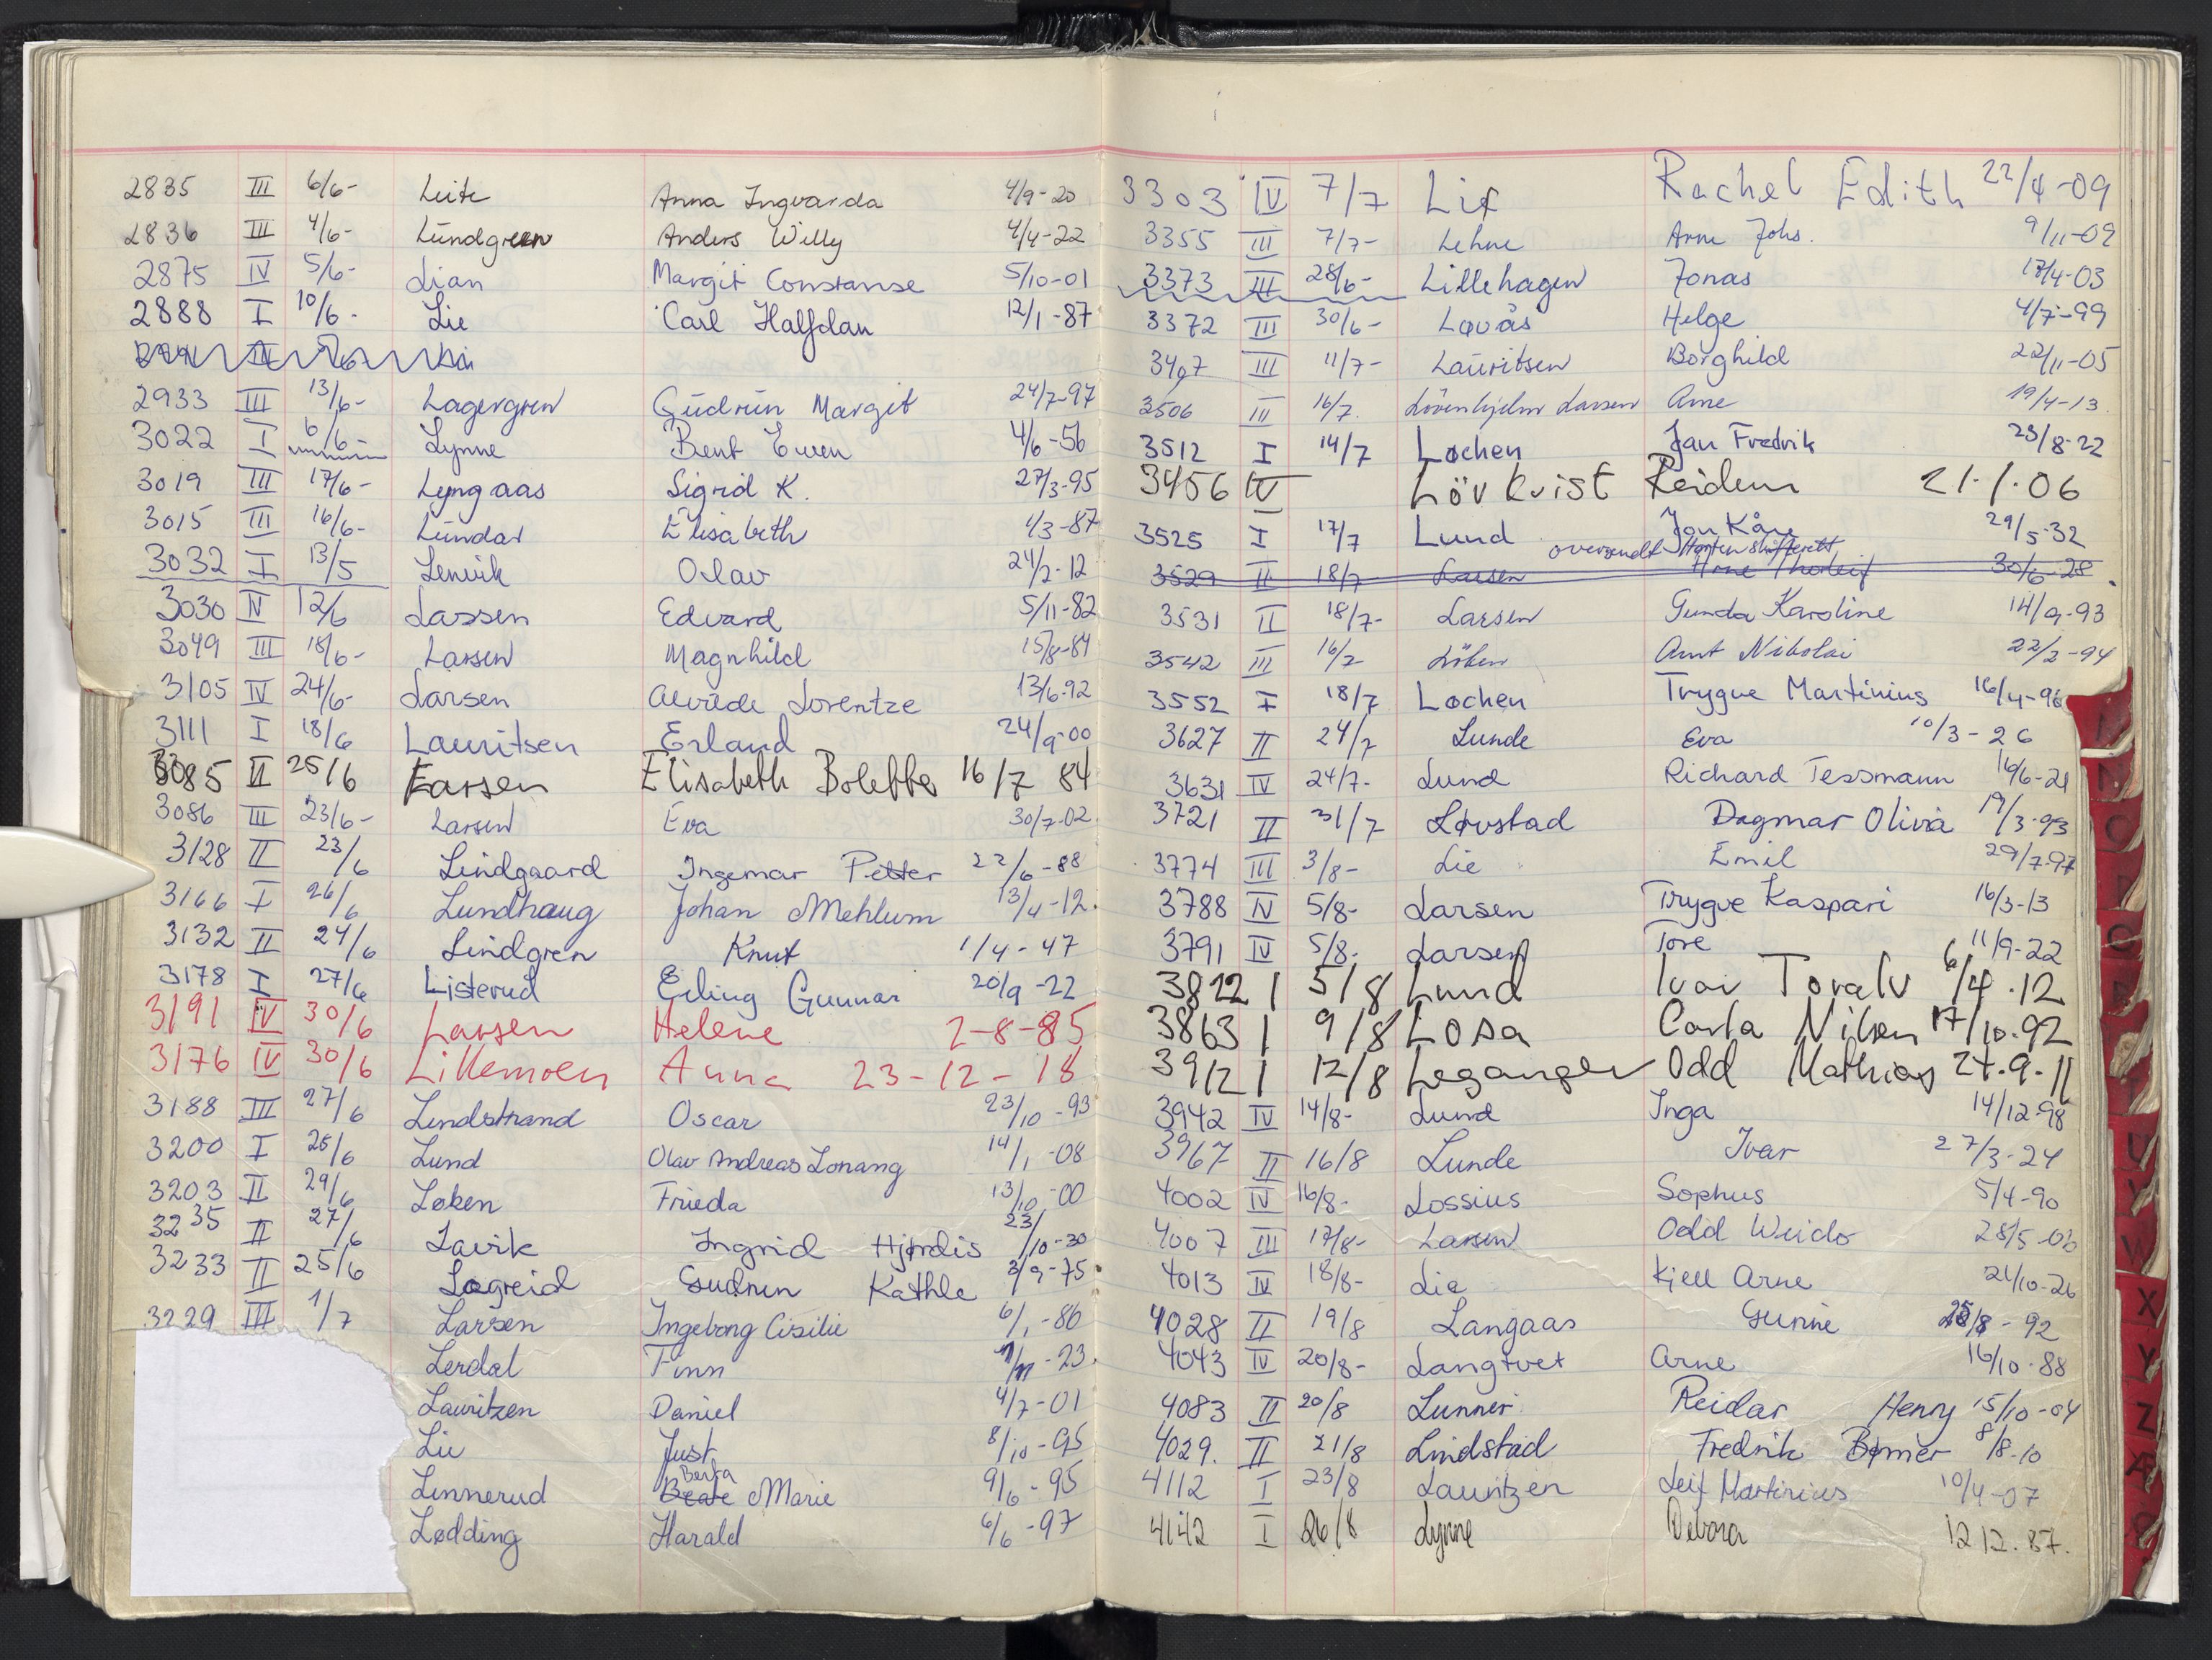 2835 III 6/6- Leite Anna Ingvarda 4/9-20
2836 III 4/6- Lundgreen Anders Willy 4/4-22
2875 IV 5/6- Lian Margit Constanse 5/10-01
2888 I 10/6- Lie Carl Halfdan 12/1-87
2933 III 13/6- Lagergren Gudrun Margit 24/7-97
3022 I 6/6- Lynne Bent Ewen 4/6-56
3019 III 17/6- Lyngaas Sigrid K. 27/3-95
3015 III 16/6- Lundar Elisabeth 4/3-87
3032 I 13/5 Lenvik Olav 24/2-12
3030 IV 12/6 Lassen Edvard 5/11-82
3049 III 18/6- Larsen Magnhild 15/8-84
3105 IV 24/6- Larsen Alvilde Lorentze 13/6-92
3111 I 18/6 Lauritsen Erland 24/9-00
3085 II 25/6 Larsen Elisabeth Bolette 16/7 84
3086 III 23/6- Larsen Eva 30/7-02
3128 II 23/6 Lindgaard Ingemar Petter 22/6-88
3166 I 26/6 Lundhaug Johan Mehlum 13/4-12.
3132 II 24/6 Lindgren Knut 1/4-47
3178 I 27/6 Listerud Erling Gunnar 20/9-22
3191 IV 30/6 Larsen Helene 2-8-85
3176 IV 30/6 Lillemoen Anna 23-12-18
3188 III 27/6 Lindstrand Oscar 23/10-93
3200 I 28/6 Lund Olav Andreas Lonang 14/1-08
3203 II 29/6 Løken Frieda 13/10-00
3235 II 27/6 Lavik Ingrid Hjørdis 23/10-30
3233 II 25/6 Løgreid Gudrun Kathle 3/9-75
3229 III 1/7 Larsen Ingeborg Cisilie 6/1-86
Lerdal Finn -23.
Lauritzen Daniel 4/7-01
Lie Just 8/10-95
Berta
Linnerud Beate Marie 9/6-95
Lødding Harald 6/6-97
3303 IV 7/7 Lie Rachel Edith 22/4-09
3355 III 7/7- Lehne Arne Johs. 9/11-09
3373 III 28/6- Lillehagen Jonas 17/4-03
3372 III 30/6- Løvås Helge 4/7-99
3407 III 11/7- Lauritsen Borghild 22/11-05
3506 III 16/7. Lövenhjelm Larsen Arne 19/4-13.
3512 I 14/7 Løchen Jan Fredrik 23/8-22
3456 IV Lövkvist Reidun 21.1.06
3525 I 17/7 Lund Jan Kåre 29/5-32
oversendt Horten skifterett
3529 II 18/7 Larsen Arne Thorleif 30/6-28.
3531 II 18/7- Larsen Gunda Karoline 14/9-93
3542 III 16/7 Löken Arnt Nikolai 22/2-94
3552 I 18/7 Løchen Trygve Martinius 16/4-96
3627 II 24/7 Lunde Eva 10/3-26
3631 IV 24/7- Lund Richard Tessmann 16/6-21
3721 II 31/7 Løvstad Dagmar Olivia 19/3-93
3774 III 3/8- Lie Emil 29/7-97
3788 IV 5/8- Larsen Trygve Kaspari 16/3-13
3791 IV 5/8. Larsen Tore 11/9-22
3822 I 5/8 Lund Ivar Toralv 6/4.12
3863 I 9/8 Losa Carla Nilsen 17/10.92
3912 I 12/8 Leganger Odd Mathias 27.9.11
3942 IV 14/8- Lund Inga 14/12-98
3967 II 16/8 Lunde Ivar 27/3-24
4002 IV 16/8- Lossius Sophus 5/4-90
4007 III 17/8- Larsen Odd Weido 28/5-03
4013 IV 18/8- Lie Kjell Arne 21/10-26
4028 II 19/8 Langaas Gunne 25/8-92
4043 IV 20/8- Langtvet Arne 16/10-88
4083 II 20/8 Lunner Reidar Henry 15/10-04
4029. II 21/8 Lindstad Fredrik Børner 8/8-10
4112 I 23/8 Lauritzen Leif Martinius 10/4-07
4142 I 26/8 Lynne Debora 12 12.87.